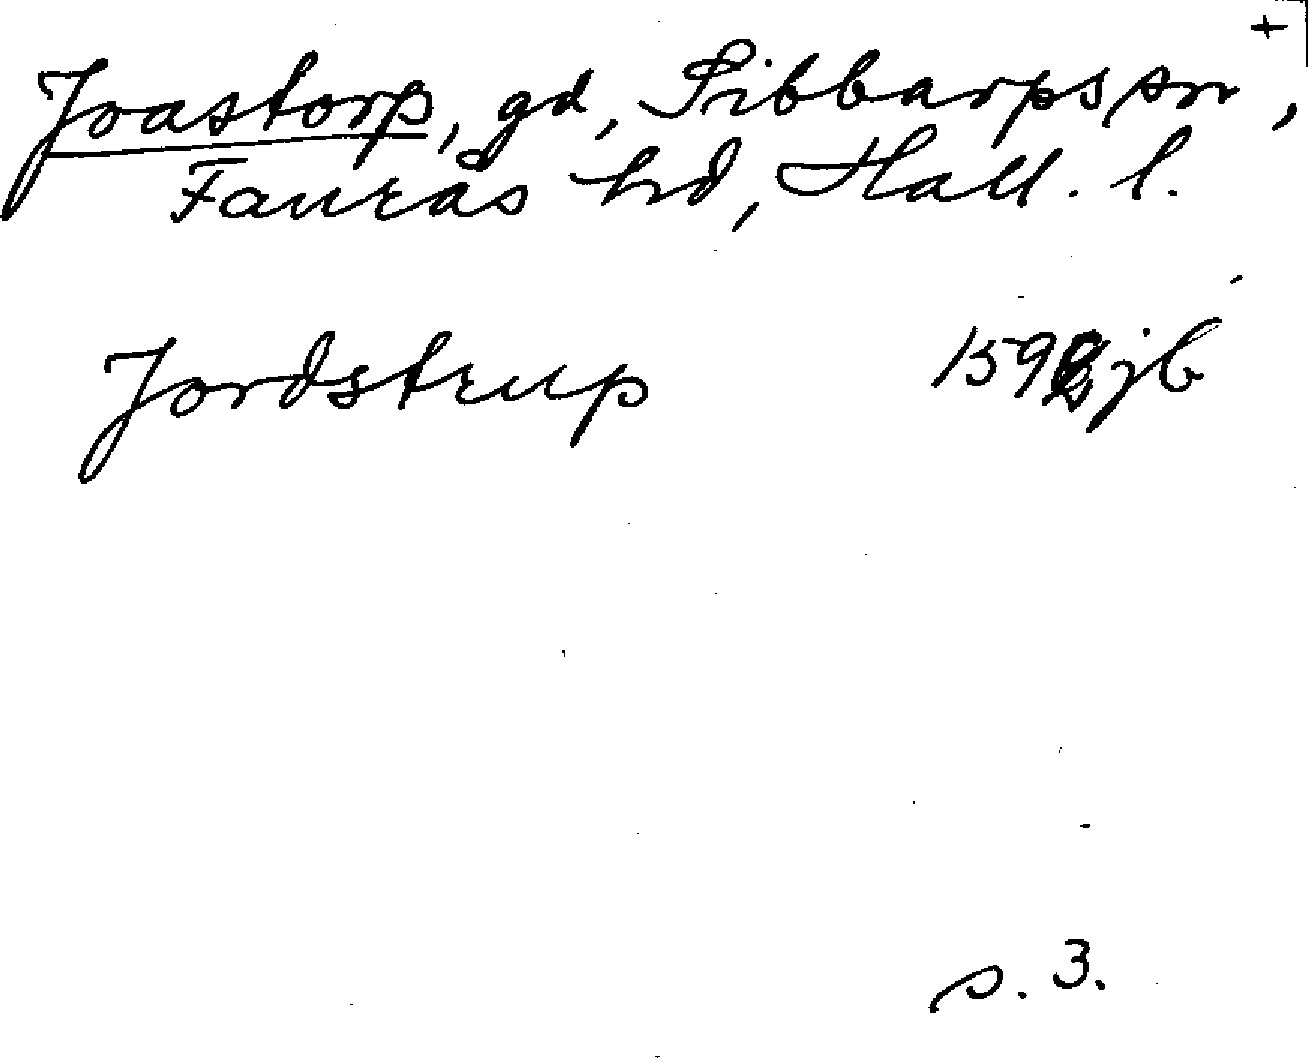 +
Joastorp, gd, Sibbarps sn,
Faurås hd, Hall. l.
Jordstrup
jb
s. 3.